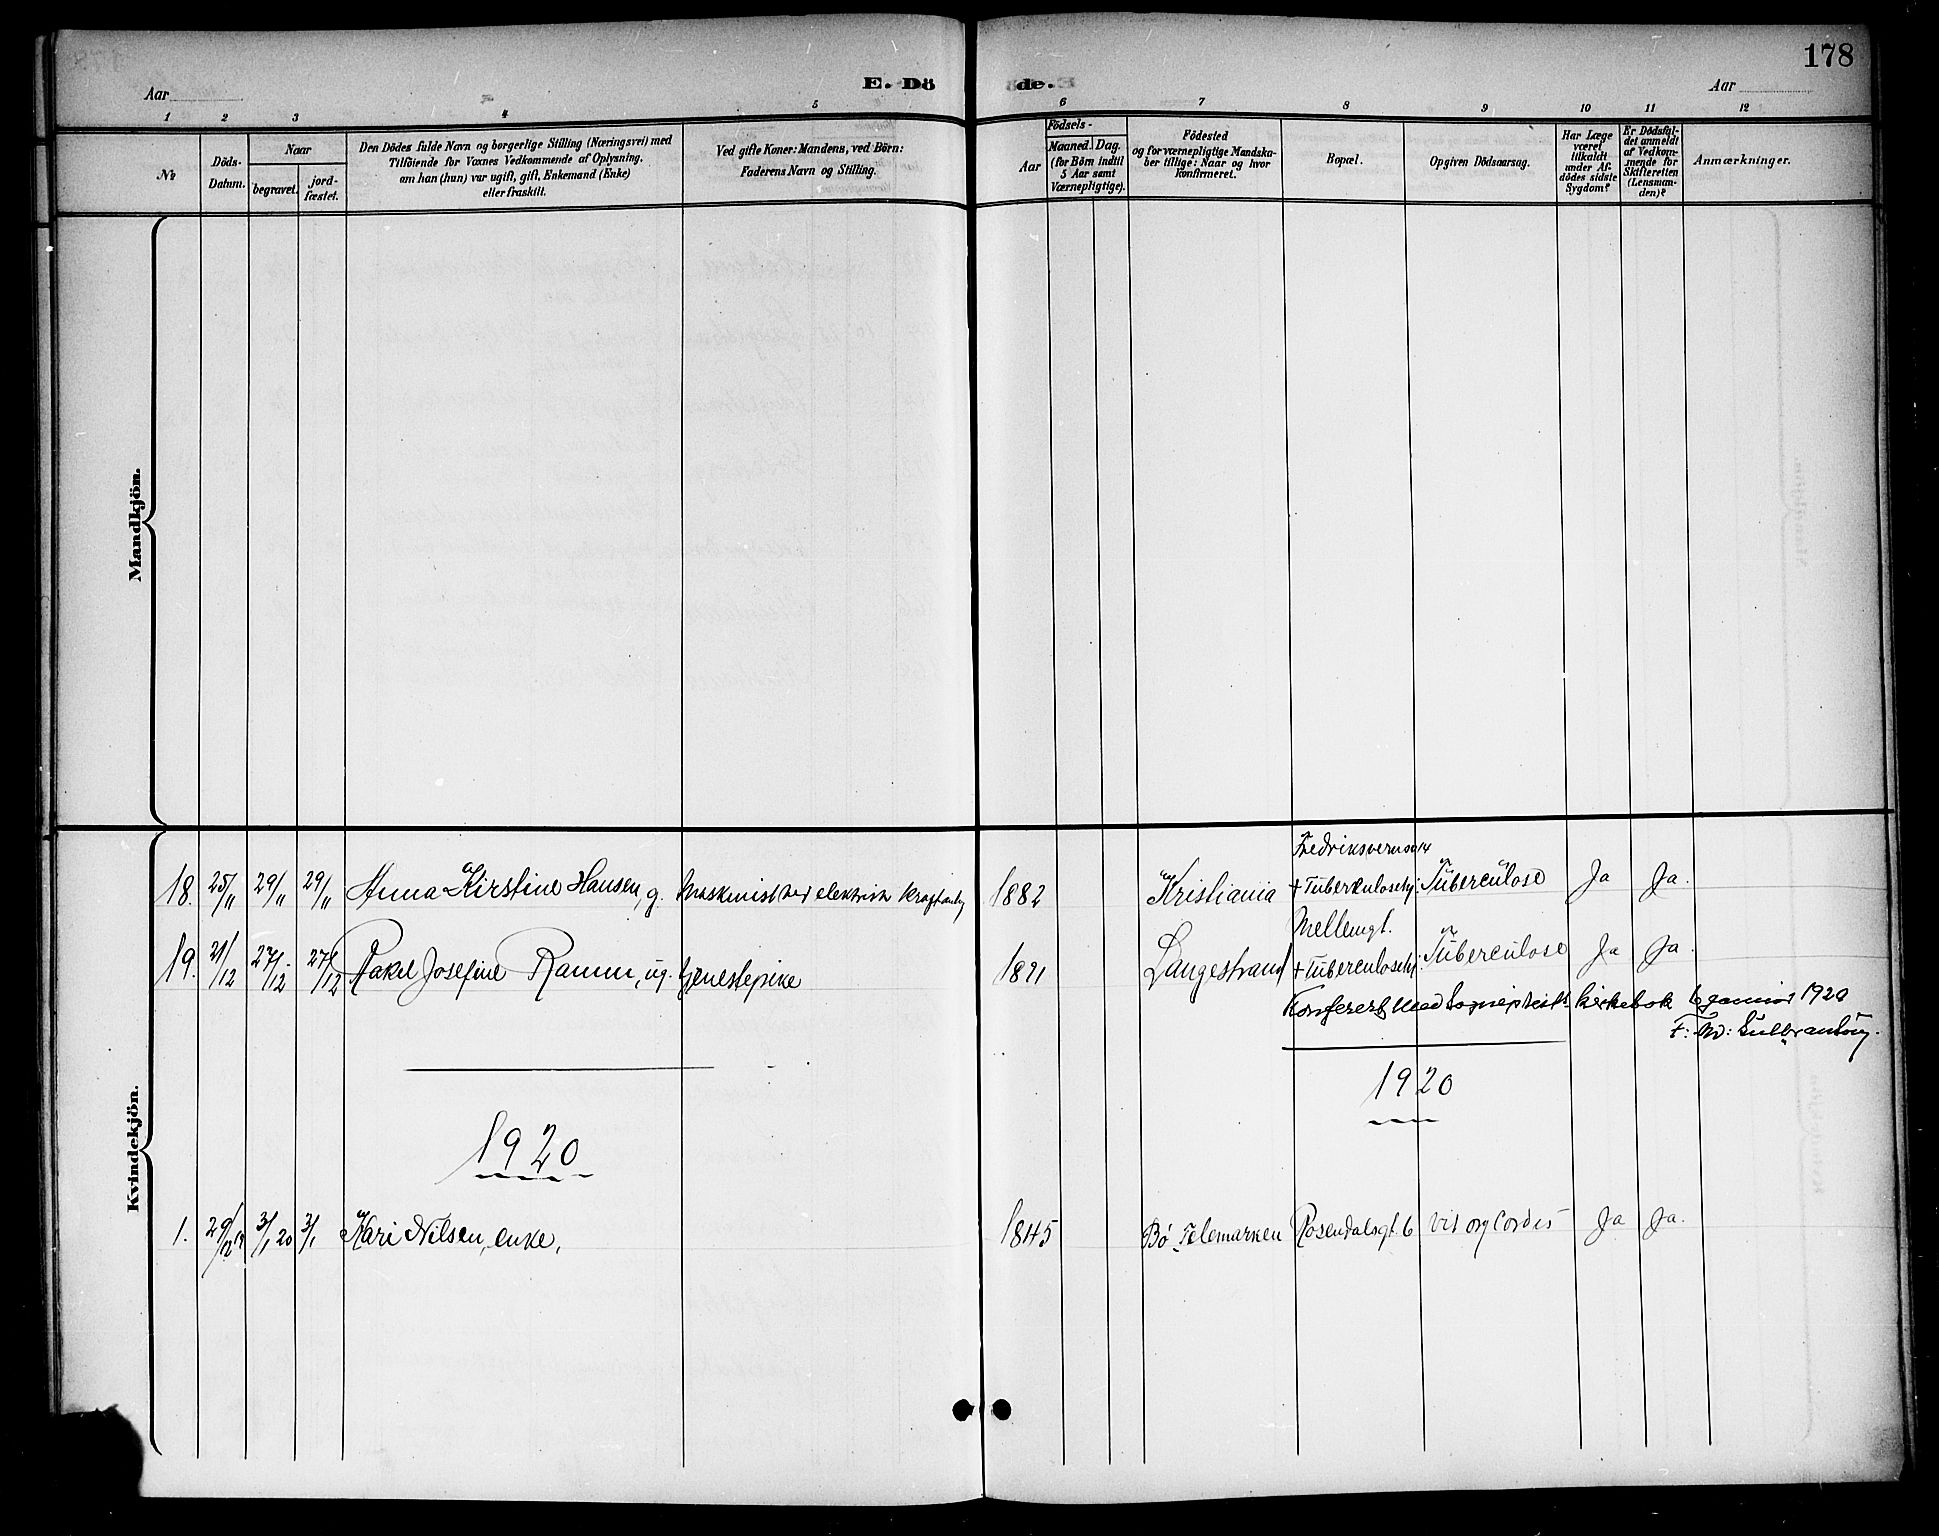 178
E. Dö de.
Aar
Aar
1 2 3 4 5 6 7 8 9 10 11 12
№
Döds-
Datum.
Naar
begravet.
jord-
fæstet.
Den Dödes fulde Navn og borgerlige Stilling (Næringsvei) med
Tilföiende for Voxnes Vedkommende af Oplysning,
om han (hun) var ugift, gift, Enkemand (Enke)
eller fraskilt.
Ved gifte Koner: Mandens, ved Börn:
Faderens Navn og Stilling.
Födsels-
Aar
Maaned. Dag.
(for Börn indtil
5 Aar samt
Værnepligtige).
Födested
og for værnepligtige Mandska-
ber tillige: Naar og hvor
konfirmeret.
Bopæl.
Opgiven Dödsaarsag.
Har Læge
været
tilkaldt
under Af-
dödes sidste
Sygdom?
Er Dödsfal-
det anmeldt
af Vedkom-
mende for
Skifteretten
(Lensman-
den)?
Anmærkninger.
Mandkjön.
Kvindekjön.
Fredriksvernsv 14
18. 25/11 29/11 29/11 Anna Kirstine Hansen, g. Maskinist ved elektrisk 1882 Kristiania + Tuberkulosehj. Tuberculose Ja Ja.
Mellemgt.
19. 21/12 27/12 27/12 Rakel Josefine Ramm, ug. tjenestepike 1891 Langestrand + Tuberculosehj. Tuberculose Ja Ja.
Konfereret med Sogneprestens kirkebok 1920
1920
1920
1. 29/12 19 3/1 20 3/1 Kari Nilsen, enke, 1845 Bø Telemarken Rosendalsgt. 6 Vit. org. Cordis Ja Ja.